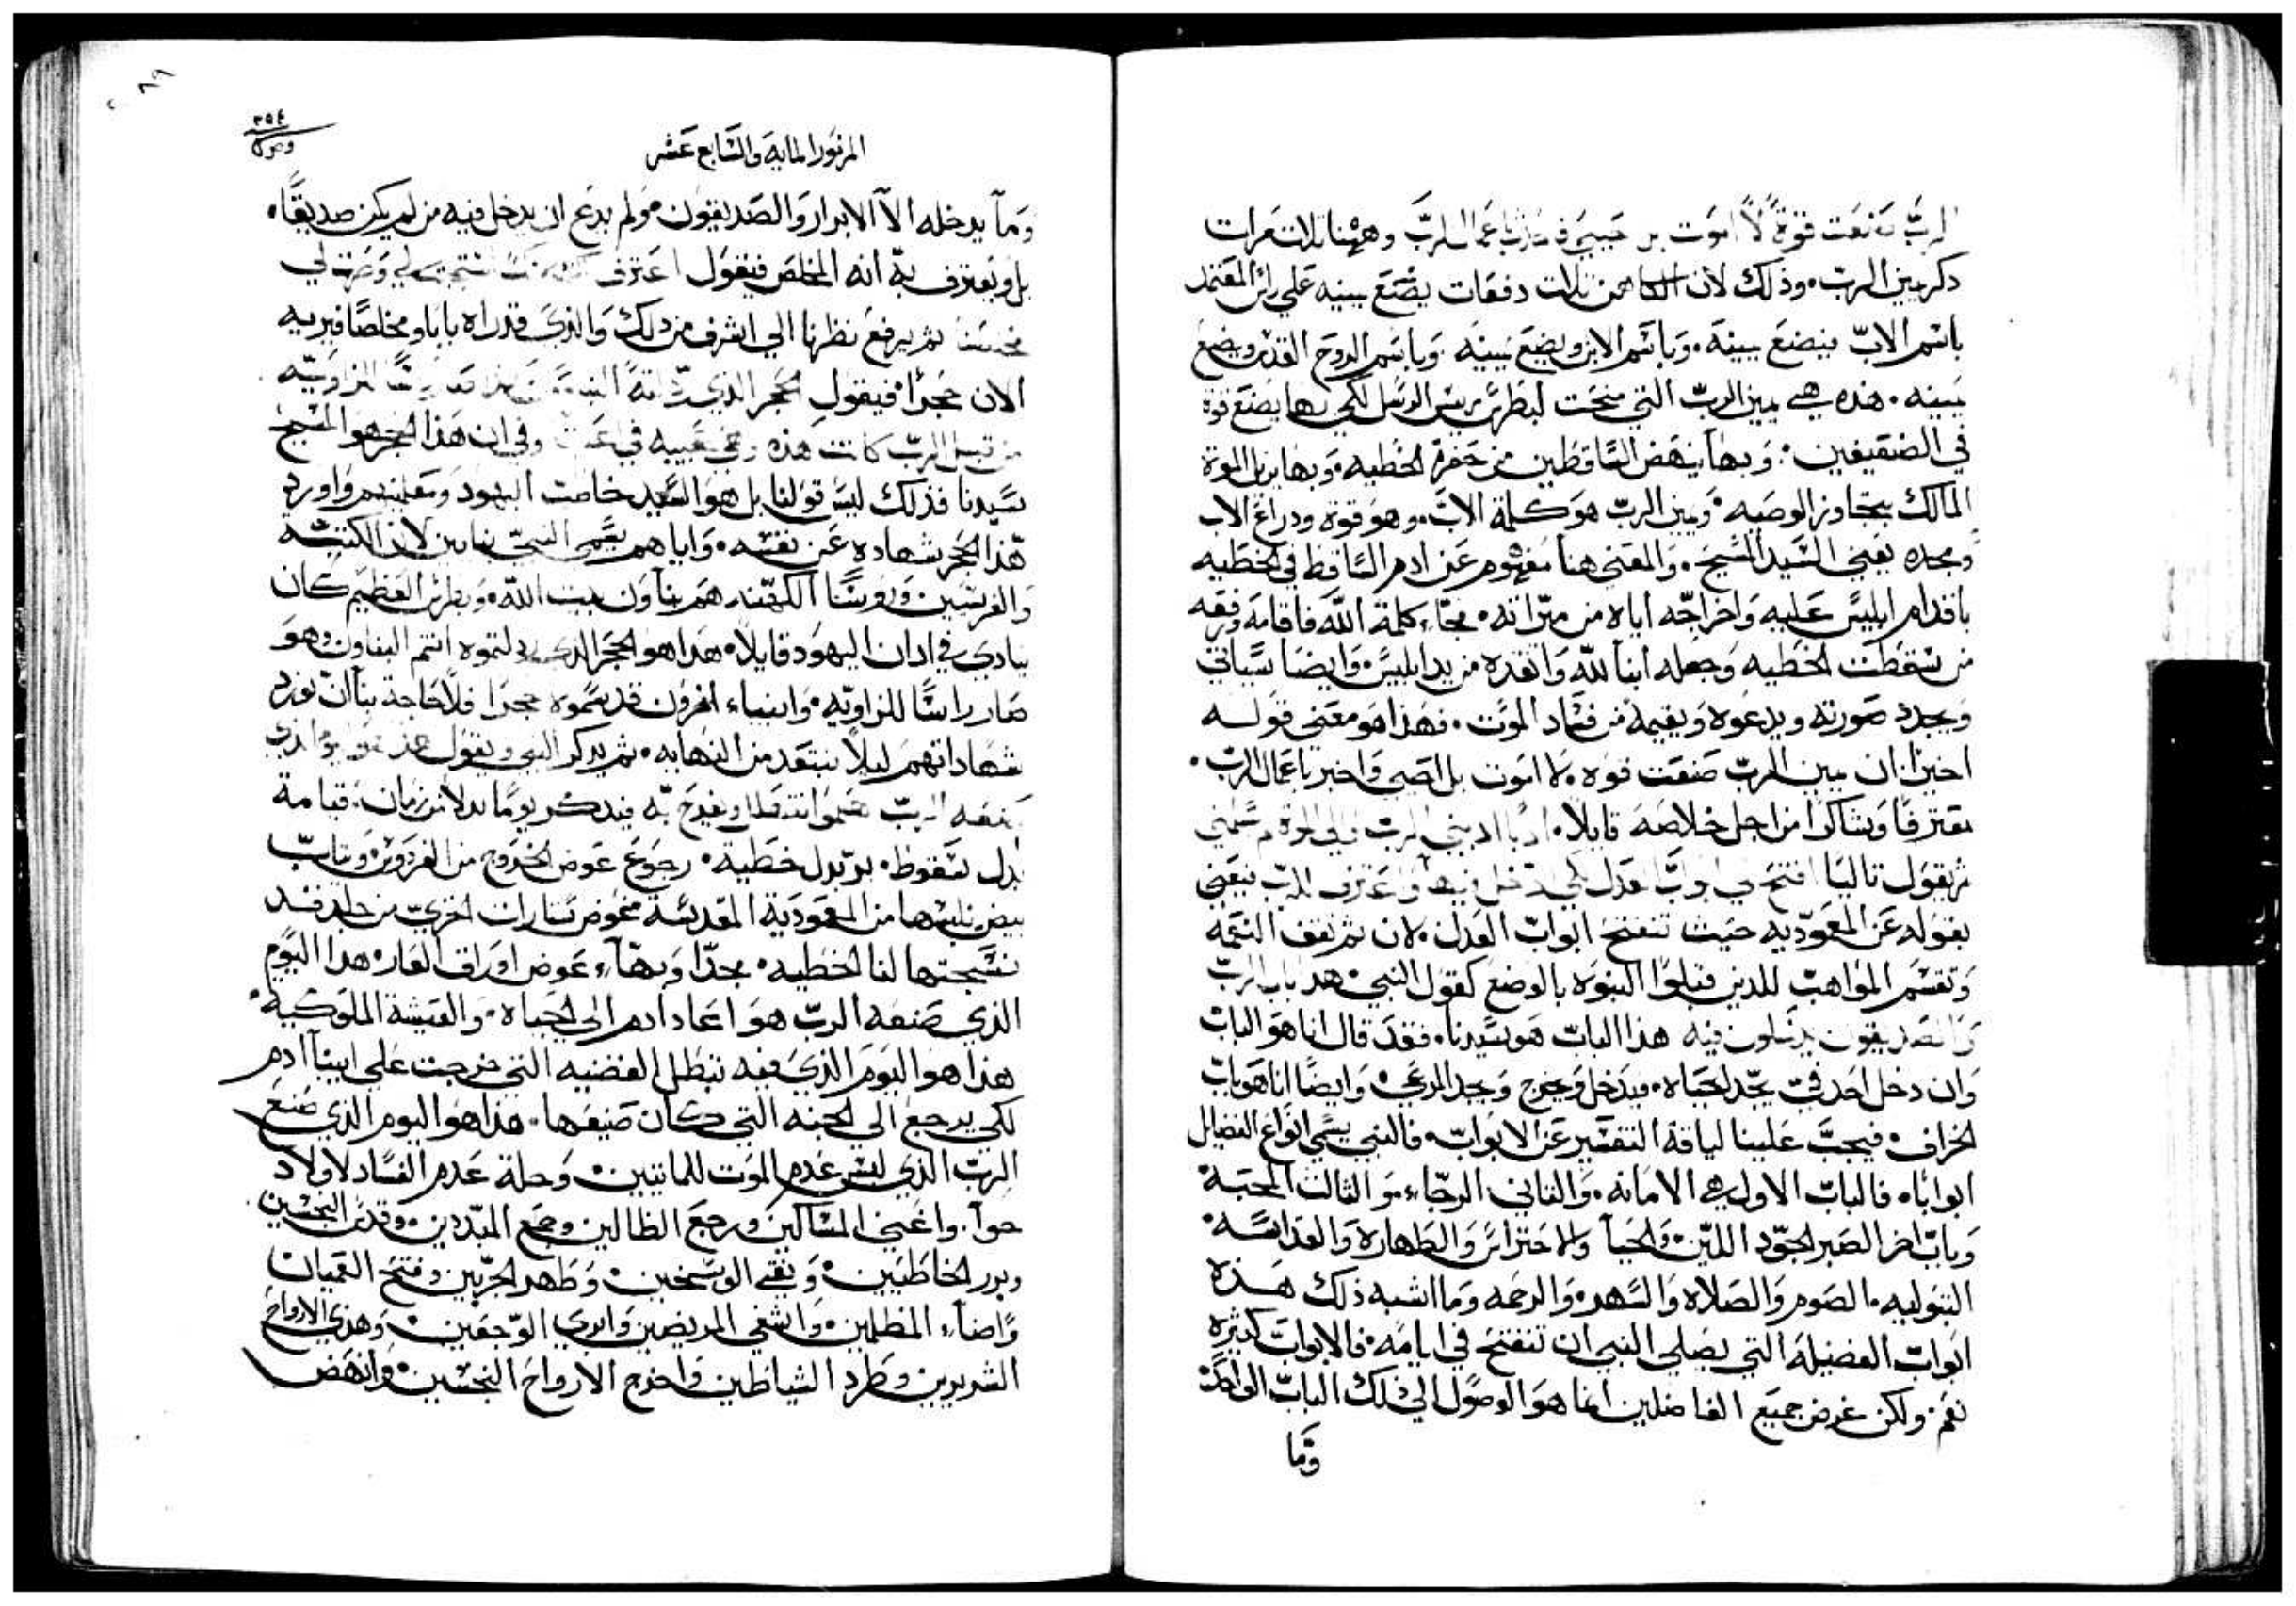 الربّ صنعت قوة لا اموت بل احيي واخبر باعمال الربّ وههنا ثلاث مرات
ذكر يمين الربّ. وذلك لان الكاهن ثلاث دفعات يضع يمينه علي راس المعتمد
باسم الابّ فيضع يمينه. وباسم الابن ويضع يمينه وباسم الروح القدس ويضع
يمينه. هذه هي يمين الربّ التي منحت لبطرس ريس الرسل لكي بها يصنع قوة
في الضعيفين. وبها ينهض الساقطين من حفرة الخطيه. وبها يزيل الموت
المالك بتجاوز الوصيه. ويمين الربّ هو كلمة الابّ. وهو قوة ودراع الاب
ومجده يعني السيد المسيح. والمعني هنا مفهوم عن ادم الساقط في الخطيه
باقدام ابليس عليه واخراجه اياه من ميراته. فجاء كلمة الله فاقامه ورفعه
من سقطت الخطيه وجعله ابنا لله وانقده من يد ابليس. وايضا سياتي
ويجدد صورته ويدعوه ويقيمه من فساد الموت. فهذا هو معني قوله
اخيرا ان يمين الربّ صنعت قوه. لا اموت بل احيي واخبر باعمال الربّ.
معترفا وشاكرا من اجل خلاصه قايلا. ادبا ادبني الربّ والي الموت لم يسلمني
ثم يقول تاليا افتحوا لي ابواب العدل لكي ادخل فيها واعترف للربّ فيعني
بقوله عن المعموديه حيث تنفتح ابواب العدل. لان ثم تقف النعمه
وتقسم المواهب للدين قبلوا البنوة بالوضع كقول النبي هذا باب الربّ
والصديقون يدخلون فيه هذا الباب هو سيدنا. فقد قال انا هو الباب
وان دخل احد في يجد الحياه. فيدخل ويخرج ويجد المرعي. وايضا انا هو باب
الخراف. فيجب علينا لياقة التفسير عن الابواب. فالنبي يسمي انواع الفضايل
ابوابا. فالباب الاول هي الامانه. والتاني الرجاء. والتالت المحبة
وباب اخر الصبر الجود اللين والحيا والاحتراس والطهارة والقداسه.
البتوليه. الصوم والصلاه والسهر والرحمه وما اشبه ذلك هذه
ابواب الفضيله التي يصلي النبي ان تنفتح في ايامه. فالابواب كثيره
نعم. ولكن غرض جميع الفاضلين انما هو الوصول الي ذلك الباب الواحد
وما
٨٩
٣٥٤
المزمور الماية والسابع عشر
وما يدخله الا الابرار والصديقون. ولم يدع ان يدخل فيه من لم يكن صديقا.
بل ويعترف به انه المخلص فيقول اعترف لك لانك استجبت لي وصرت لي
مخلصا ثم يرفع نظرنا الي اشرف من ذلك والذي قد راه بابا ومخلصا فيريه
الان حجرا. فيقول الحجر الذي رذله البناوون هذا صار راسا للزاويه
من قبل الربّ كانت هذه وهي عجيبه في اعيننا وفي ان هذا الحجر هو المسيح
سيدنا فذلك ليس قولنا بل هو السيد خاطب اليهود ومعلميهم واورد
هذا الحجر شهاده عن نفسه. واياهم يعني النبي بنايين لان الكتبه
والفريسين وروسا الكهنه هم بناون بيت الله. وبطرس العظيم كان
ينادي في ادان اليهود قايلا. هذا هو الحجر الذي رذلتموه انتم البناون وهو
صار راسا للزاويه. وانبياء اخرون قد سموه حجرا فلا حاجة بنا ان نورد
شهاداتهم ليلا نبتعد من النهايه. ثم يذكر النبي ويقول هذا هو اليوم الذي
صنعه الربّ هلموا نتهلل ونفرح به فيذكر يوما بدلا من زمان. قيامة
بدل سقوط. بر بدل خطية. رجوع عوض الخروج من الفردوس. وثياب
بيض نلبسها من المعمودية المقدسة عوض ستارات اخري من جلد قد
نسجتها لنا الخطيه. مجدا وبهاء عوض اوراق العار. هذا اليوم
الذي صنعه الربّ هو اعاد ادم الي الحياه. والعيشة الملوكية.
هذا هو اليوم الذي فيه تبطل القضيه التي خرجت علي ابينا ادم
لكي يرجع الي الجنه التي كان ضيعها. هذا هو اليوم الذي صنع
الربّ الذي لبس عدم الموت للمايتين. وحلة عدم الفساد لاولاد
حوا. واغني المساكين ورجع الضالين وجمع المبددين. وقدس النجسين
وبرر الخاطيين. ونقي الوسخين. وطهر الجربين وفتح العميان
واضاء المظلمين. واشفي المريضين وابري الوجعين. وهذي الارواح
الشريرين وطرد الشياطين واخرج الارواح النجسين وانهض